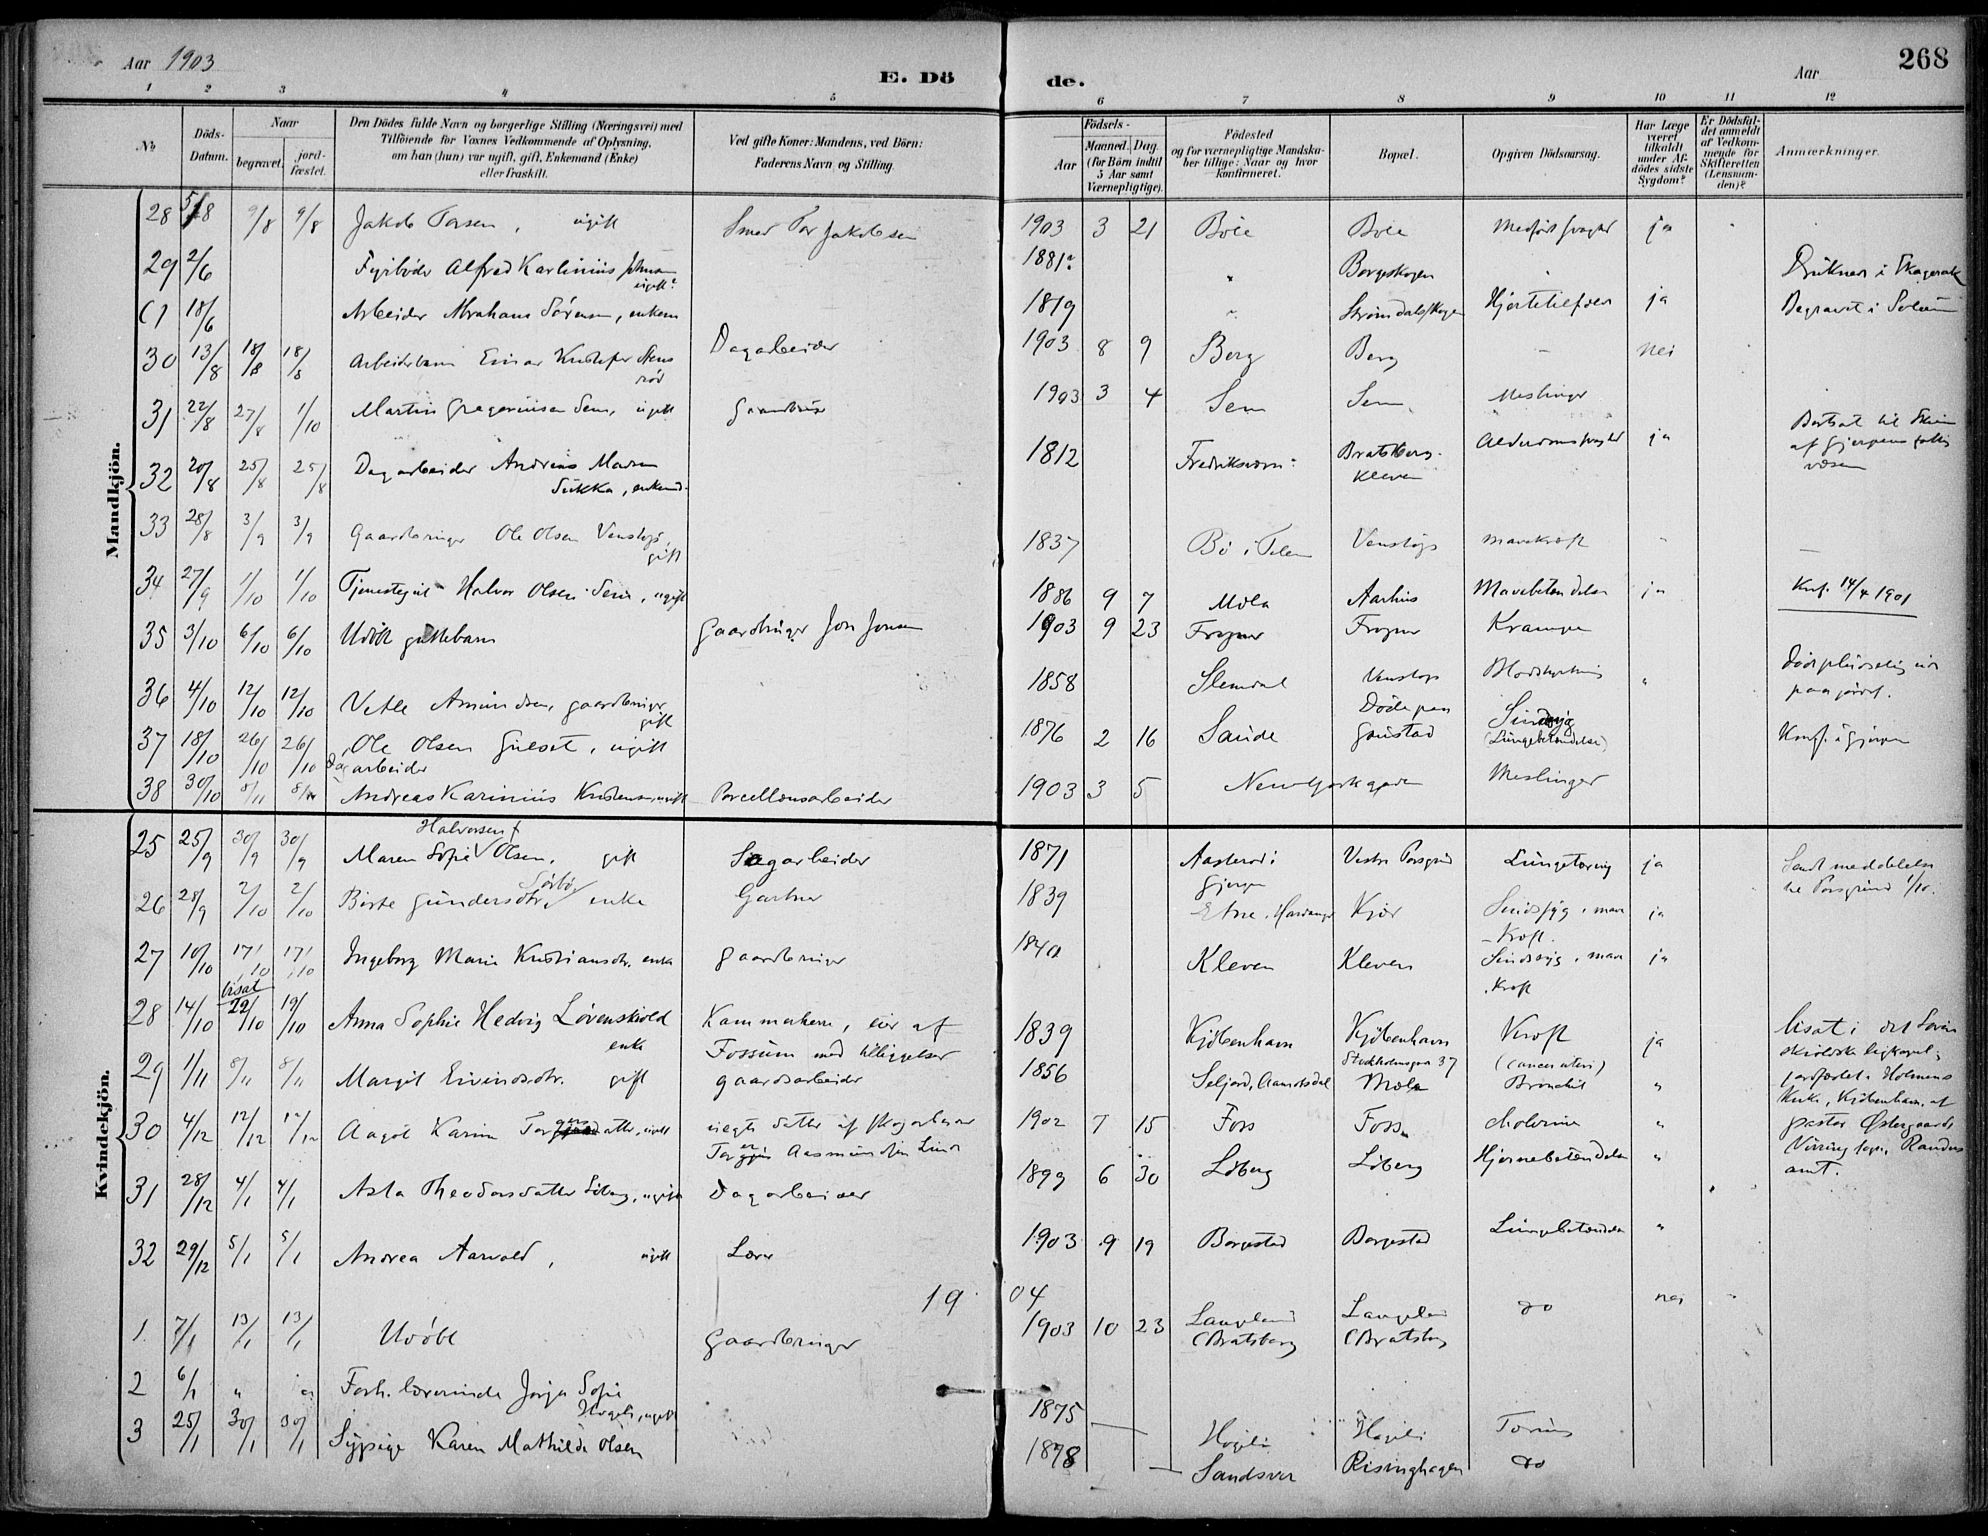 Aar 1903
E. Döde.
Aar
268
1 2 3 4 5 6 7 8 9 10 11 12
No
Döds-Datum.
Naar
begravet.
jord-fæstet.
Den Dödes fulde Navn og borgerlige Stilling (Næringsvei) med
Tilföiende for Voxnes Vedkommende af Oplysning,
om han (hun) var ugift, gift, Enkemand (Enke)
eller fraskilt.
Ved gifte Koner: Mandens, ved Börn:
Faderens Navn og Stilling.
Födsels-
Aar
Maaned. Dag.
(for Börn indtil
5 Aar samt
Værnepligtige).
Födested
og for værnepligtige Mandska-
ber tillige: Naar og hvor
konfirmeret.
Bopæl.
Opgiven Dödsaarsag.
Har Læge
været
tilkaldt
under Af-
dödes sidste
Sygdom?
Er Dödsfal-
det anmeldt
af Vedkom-
mende for
Skifteretten
(Lensman-
den)?
Anmærkninger.
Mandkjön.
28 5/8 9/8 9/8 Jakob Torsen, ugift Smed Tor Jakobsen 1903 3 21 Böle Böle ja
29 2/6 Fyrbøder Alfred Karlinius Johnsen ugift? 1881? " Borgeskogen Druknet i Skagerak
18/6 Arbeider Abraham Sörensen, enkem 1819 " Strömdalsskogen Hjertetilfælde ja Begravet i Solum
30 13/8 18/8 18/8 Arbeiderbarn Einar Kristofer Stensrød Dagarbeider 1903 8 9 Borg Berg - nei
31 22/8 27/8 1/10 Martin Gregoriusen Sem, ugift Gaardbruger 1903 3 4 Sem Sem Meslinger
32 20/8 25/8 25/8 Dagarbeider Andreas Madsen Sukka, enkemd. 1812 Fredriksværn Bratsberg-kleven Alderdomssvaghed ja Bortsat til Skien af Gjerpens fattigvæsen
33 28/8 3/9 3/9 Gaardbruger Ole Olsen Venstøp, gift 1837 Bø i Telem Venstøp mavekræft "
34 27/9 1/10 1/10 Tjenestegut Halvor Olsen Sem, ugift 1886 9 7 Mæla Aarhus Mavebetændelse ja Konf. 14/4 1901
35 3/10 6/10 6/10 Udøbt guttebarn Gaardbruger Jon Jonsen 1903 9 23 Frogner Frogner Krampe
36 4/10 12/10 12/10 Vetle Amundsen, gaardbruger gift 1858 Slemdal Venstøp Blodstyrtning " Døde pludselig ude paa jordet.
37 18/10 26/10 26/10 Ole Olsen Gulset, ugift Dagarbeider 1876 2 16 Saude Döde paa Gaustad Sindsyg (Lungebetændelse) Konf. i Gjerpen
38 30/10 8/11 8/11 Andreas Karinius Kristensen, ugift Porcellænsarbeider 1903 3 5 Newyorkgaden Meslinger
Kvindekjön.
25 25/9 30/9 30/9 Maren Sofie Halvorsen f Olsen, gift Sagarbeider 1871 Aasterød i Gjerpen Vestre Porsgrund Lungetæring ja Sendt meddelelse til Porsgrund 1/10.
26 28/9 2/10 2/10 Birte Gundersdtr. Sörbö, enke Gartner 1839 Etne, Hardanger Kjør Sindssyg, mavekræft. ja
27 10/10 17/10 17/10 Ingeborg Marie Kristiansdtr. enke Gaardbruger 1840 Kleven Kleven Sindssyg, mavekræft ja
28 14/10 bisat 22/10 19/10 Anna Sophie Hedvig Løvenskiold enke Kammerherre, eier af Fossum med tilliggelser 1839 Kjöbenhavn Kjöbenhavn Stockholmsgade 37 Kræft (cancer uteri) ja bisat i det Løvenskioldske ligkapel; jordfæstet i Holmens Kirke, Kjöbenhavn, af pastor Østergaard Virring sogn, Randers amt.
29 1/11 8/11 8/11 Margit Eivindsdtr. gift gaardsarbeider 1856 Seljord, Aamotsdal Mæla Bronchit "
30 4/12 12/12 12/12 Aagot Karin Torgeirsdatter, ugift uegte datter af skogarbeider Torgeir Aasmundsen Lund 1902 7 15 Foss Foss cholerine "
31 28/12 4/1 4/1 Asta Theodorsdatter Löberg, ugift Dagarbeider 1899 6 30 Löberg Löberg Hjernebetændelse "
32 29/12 5/1 5/1 Andrea Aarvold, ugift Lærer 1903 9 19 Borgestad Borgestad Lungebetændelse "
1904
1 7/1 13/1 13/1 Udøbt Gaardbruger 1903 10 23 Langeland (Bratsberg Langeland (Bratsberg do nei "
2 6/1 " " Forh. lærerinde Jørgine Sofie Hogeli, ugift 1875 — Hogeli Hogeli
3 25/1 30/1 30/1 Sypige Karen Mathilde Olsen 1878 — Sandsvær Risinghagen do